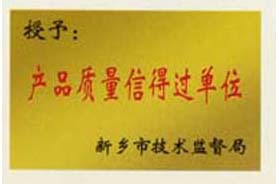 授予：
产品质量信得过单位
新乡市技术监督局